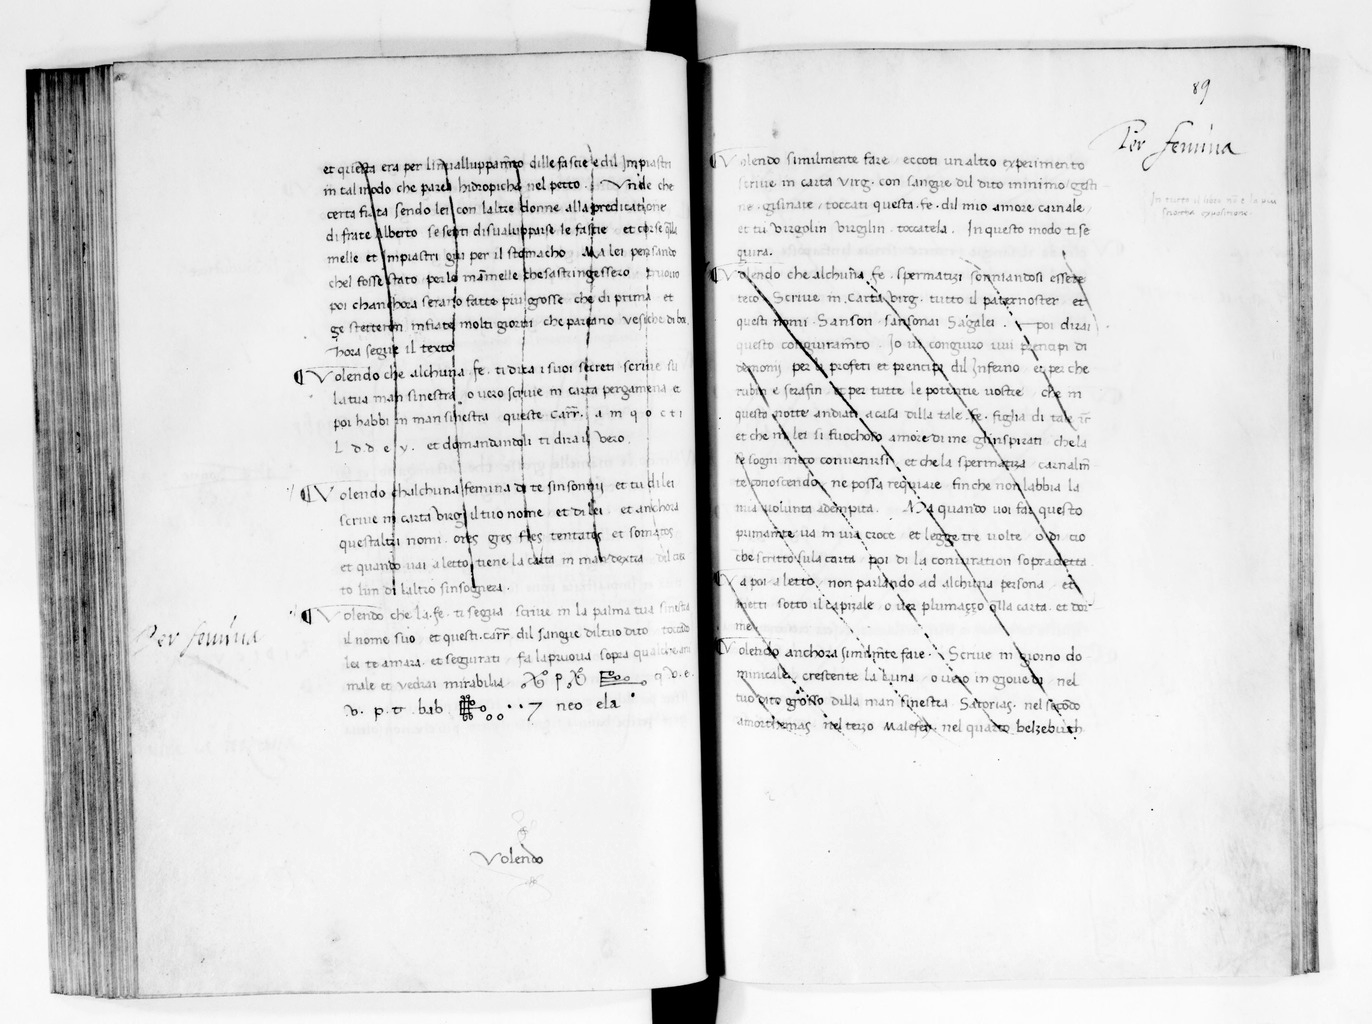 et questa era per linvalluppamto dille fascie e dil Impiastri
in tal modo che parea hidropicha nel petto. Unde che
certa fiata sendo lei con laltre donne alla predicatione
di frate Alberto se senti disvalupparse le fascie et corse qlli
melle et impiastri giu per il stomacho. Ma lei pensando
chel fosse stato per le mamelle che sastringessero truovo
poi chanchora serano fatte piu grosse che di prima et
ge stetteron infiate molti giorni che pareano vesiche di bo.
hora segue il texto
Volendo che alchuna .fe. ti dica i suoi secreti scrive su
la tua man sinestra. o vero scrive in carta pergamena et
poi habbi in man sinestra queste Carr. a m q o c t i
L d. d e v. et domandandoli ti dira il vero.
Volendo chalchuna femina di te sinsonnij et tu di lei
scrive in carta virg. il tuo nome et di lei et anchora
questaltri nomi. ores ges fres tentatos et somatos
et quando vai a letto, tiene la carta in man dextra
to lun di laltro sinsognera.
Volendo che la .fe. ti segua scrive in la palma tua sinistra
il nome suo et questi. carr. dil sangue dil tuo dito toccando
lei te amara. et seguirati fa la pruova sopra qualche ani
male et vedrai mirabilia p. q. v. e.
v. p. t. bab 7 neo ela
Per femina
Volendo
89
Per femina
Volendo similmente fare eccoti un altro experimento
scrive in carta virg. con sangue dil dito minimo / gesti
ne. gisinate, toccati questa .fe. dil mio amore carnale,
et tu virgolin virgilin toccatela. In questo modo ti se
quira.
Volendo che alchuna .fe. spermatizi sonniandosi essere
teco Scrive in Carta virg. tutto il paternoster et
questi nomi Sanson sansonai Sagalei. poi dirai
questo conguiramto. Io vi conguiro vui principi di
demonij per li profeti et prencipi dil Inferno et per che
rubin e serafin et per tutte le potentie vostre che in
questo notte andiati a casa dilla tale .fe. figlia di tale
et che in lei si fuochoso amore di me gl'inspirati che la
se sogni meco convenirsi et che la spermatiza carnalm
te conoscendo ne possa requiare fin che non labbia la
mia volunta adempita. Ma quando voi far questo
primamte va in via croce et legge tre volte o di cio
che scritto su la carta poi di la coniuration sopradetta
Va poi a letto, non parlando ad alchuna persona et
metti sotto il capizale o ver plumazzo qlla carta. et dor
me.
Volendo anchora simil'mte fare. Scrive in giorno do
minicale crescente la Luna o vero in giove di nel
tuo dito grosso dilla man sinestra Satorias. nel secodo
amorthemas nel terzo Malefer, nel quarto belzebuth